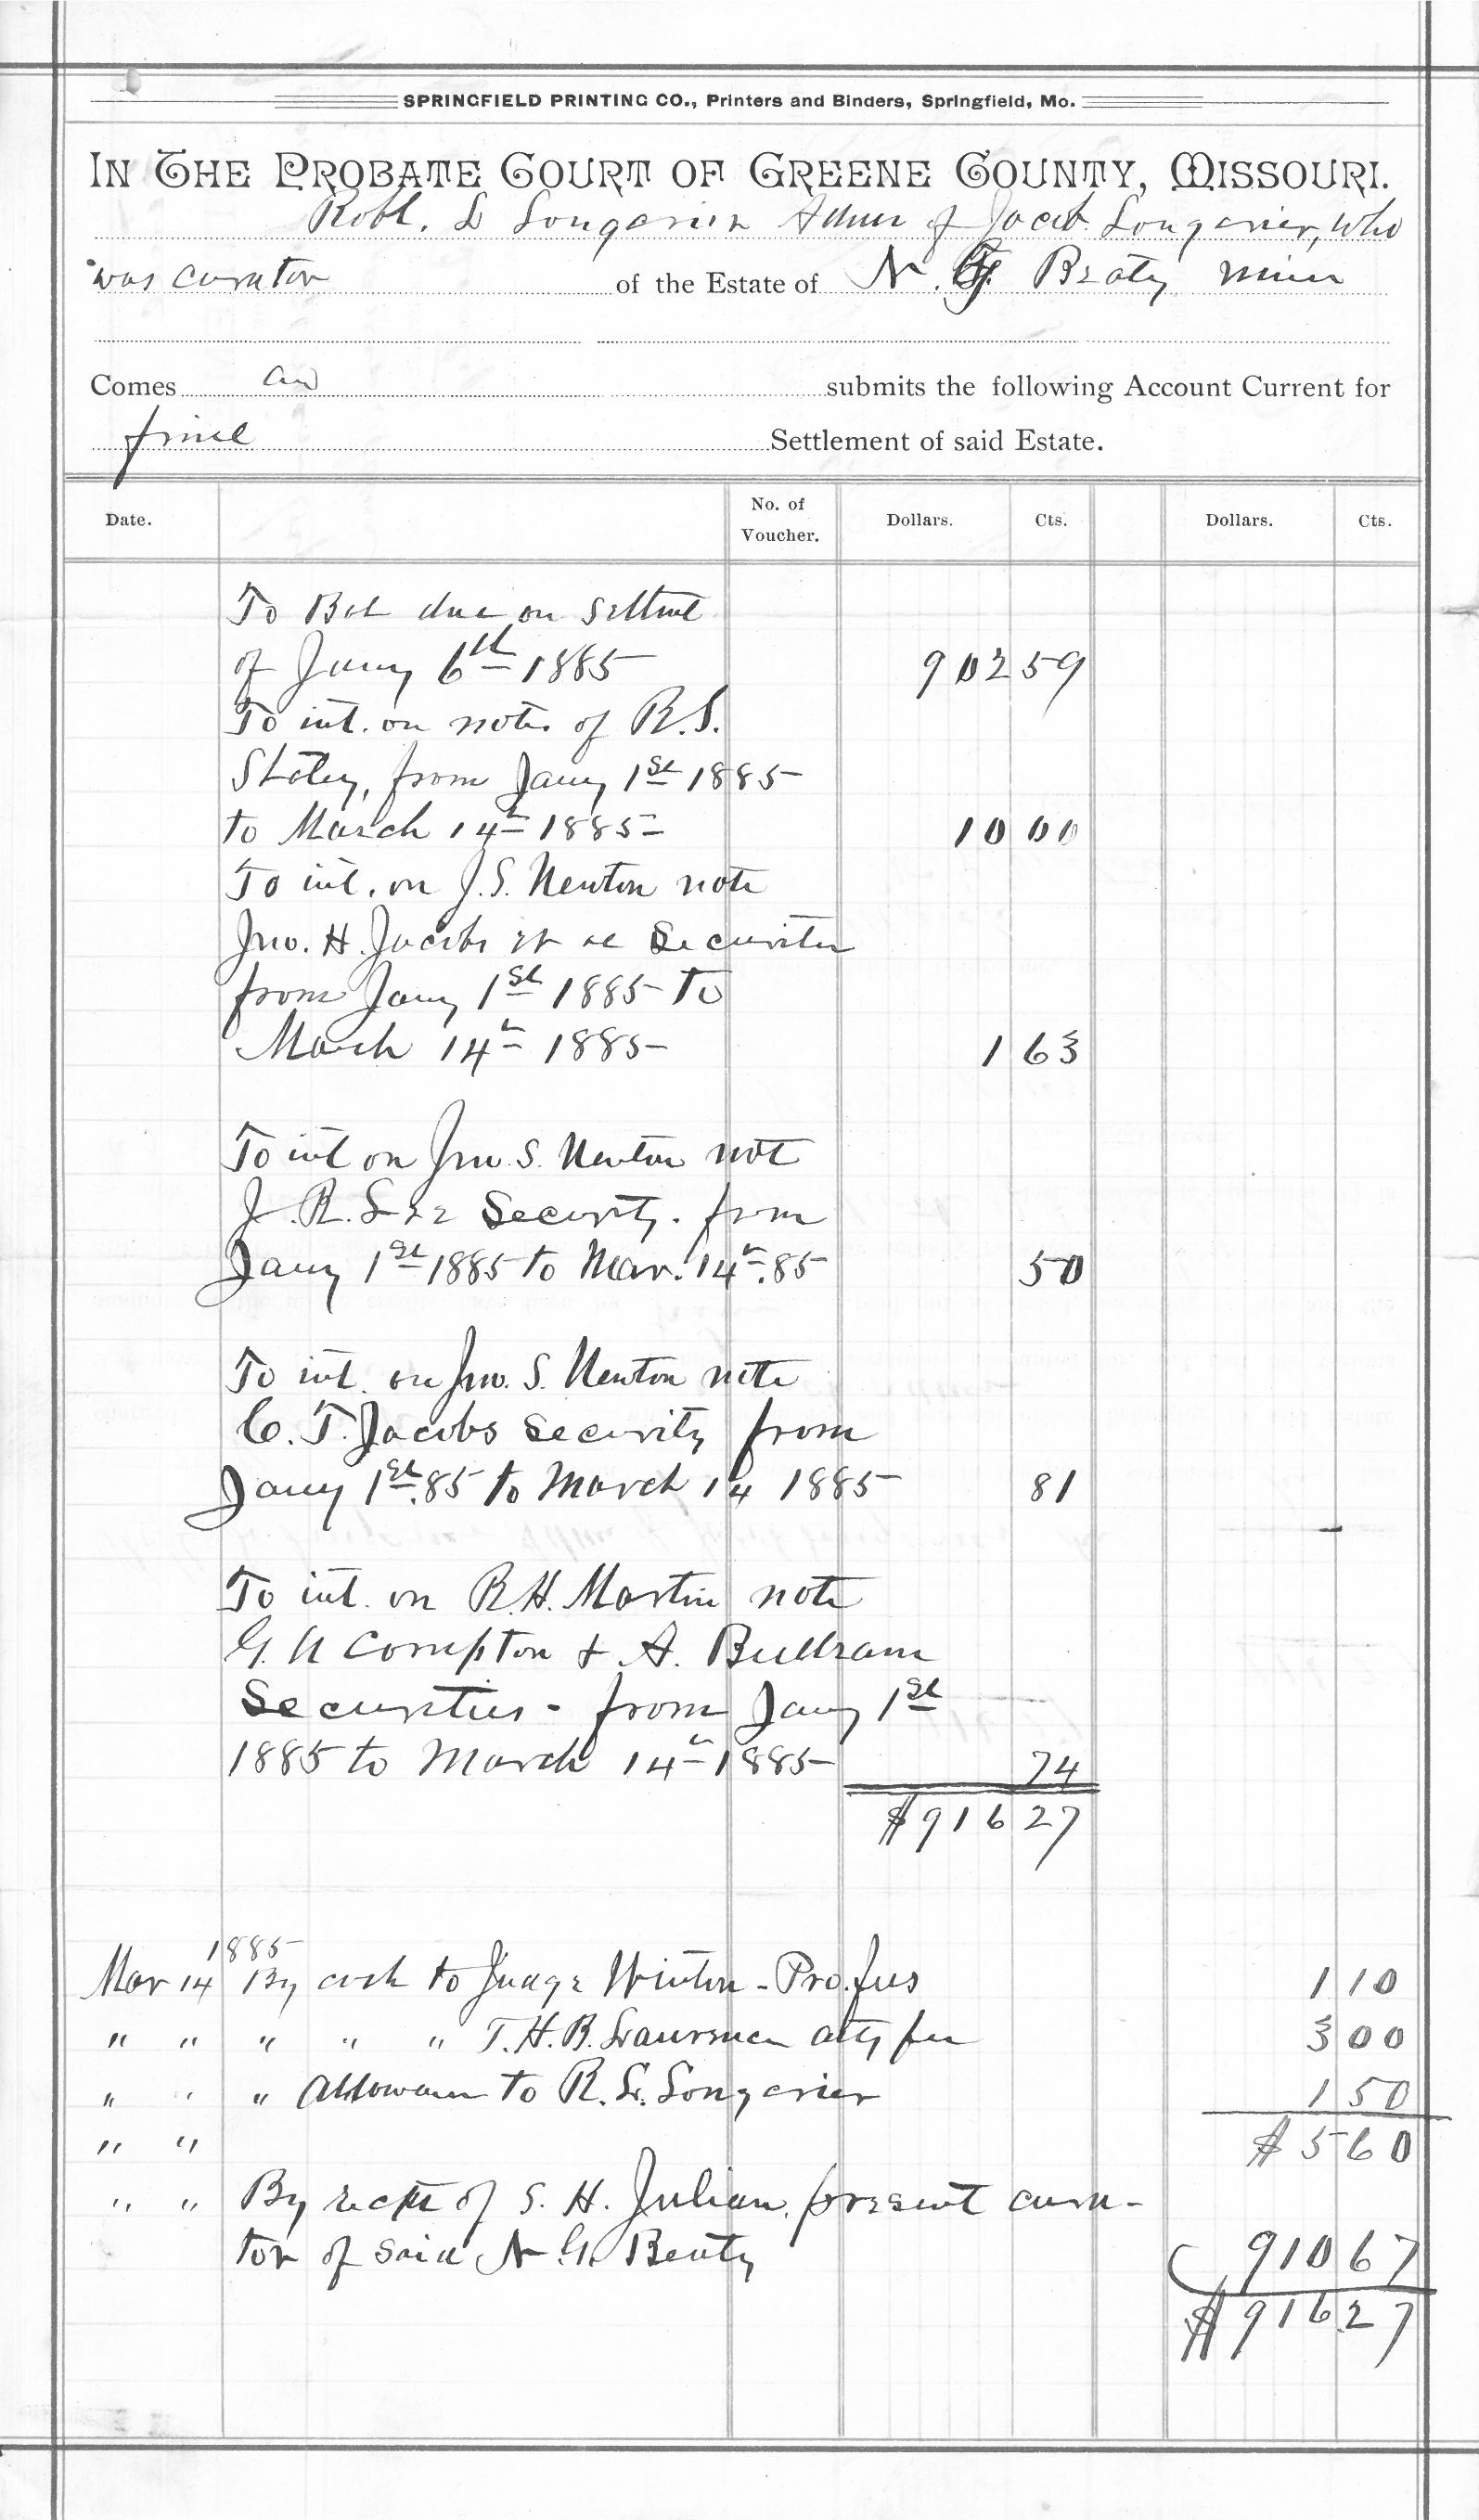 SPRINGFIELD PRINTING CO., Printers and Binders, Springfield, Mo.
IN THE PROBATE COURT OF GREENE COUNTY, MISSOURI.
Robt. L Longcrier Admr of Jacob Longcrier, who
was curator of the Estate of N. G. Beaty minor
Comes and submits the following Account Current for
final Settlement of said Estate.
Date. No. of Voucher. Dollars. Cts. Dollars. Cts.
To Bal due on Settmt
of Jany 6th 1885 902 59
To int. on notes of R.S.
Staley, from Jany 1st 1885
to March 14th 1885 10 00
To int. on J.S. Newton note
Jno. H. Jacobs et al Securities
from Jany 1st 1885 to
March 14th 1885 1 63
To int on Jno. S. Newton not
J. R. Lee Security. from
Jany 1st 1885 to Mar. 14th. 85 50
To int. on Jno. S. Newton note
C. T. Jacobs Security from
Jany 1st. 85 to March 14 1885 81
To int. on R.H. Martin note
G. N Compton & A.
Securities - from Jany 1st
1885 to March 14th 1885 74
$916 27
1885
Mar 14 By cash to Judge Winton - Pro. fees 1 10
" " " " " T.H.B. Lawrence atty fee 3 00
" " " Allowance to R. L. Longcrier 1 50
" " $5 60
" " By rect of S. H. Julian, present cura-
tor of said N G. Beaty 910 67
$916 27